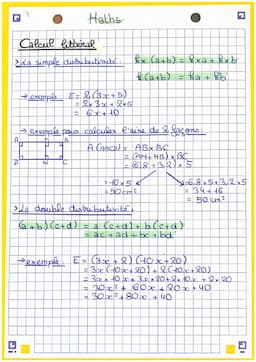 Maths
Calcul littéral
> La simple distributivité : k×(a+b) = k×a + k×b
k(a+b) = ka + kb
→ exemple E = 2(3x+5)
= 2×3x + 2×5
= 6x + 10
→ exemple pour calculer l'aire de 2 façons :
A (ABCD) = AB×BC
= (AM+MB)×BC
= (6,8+3,2)×5
= 10×5
= 50 cm²
= 6,8×5+3,2×5
= 34+16
= 50 cm²
> La double distributivité :
(a+b)(c+d) = a(c+d)+b(c+d)
= ac+ad+bc+bd
→ exemple : E = (3x+2)(10x+20)
= 3x(10x+20)+2(10x+20)
= 3x×10x+3x×20+2×10x+2×20
= 30x² + 60x + 20x + 40
= 30x² + 80x + 40